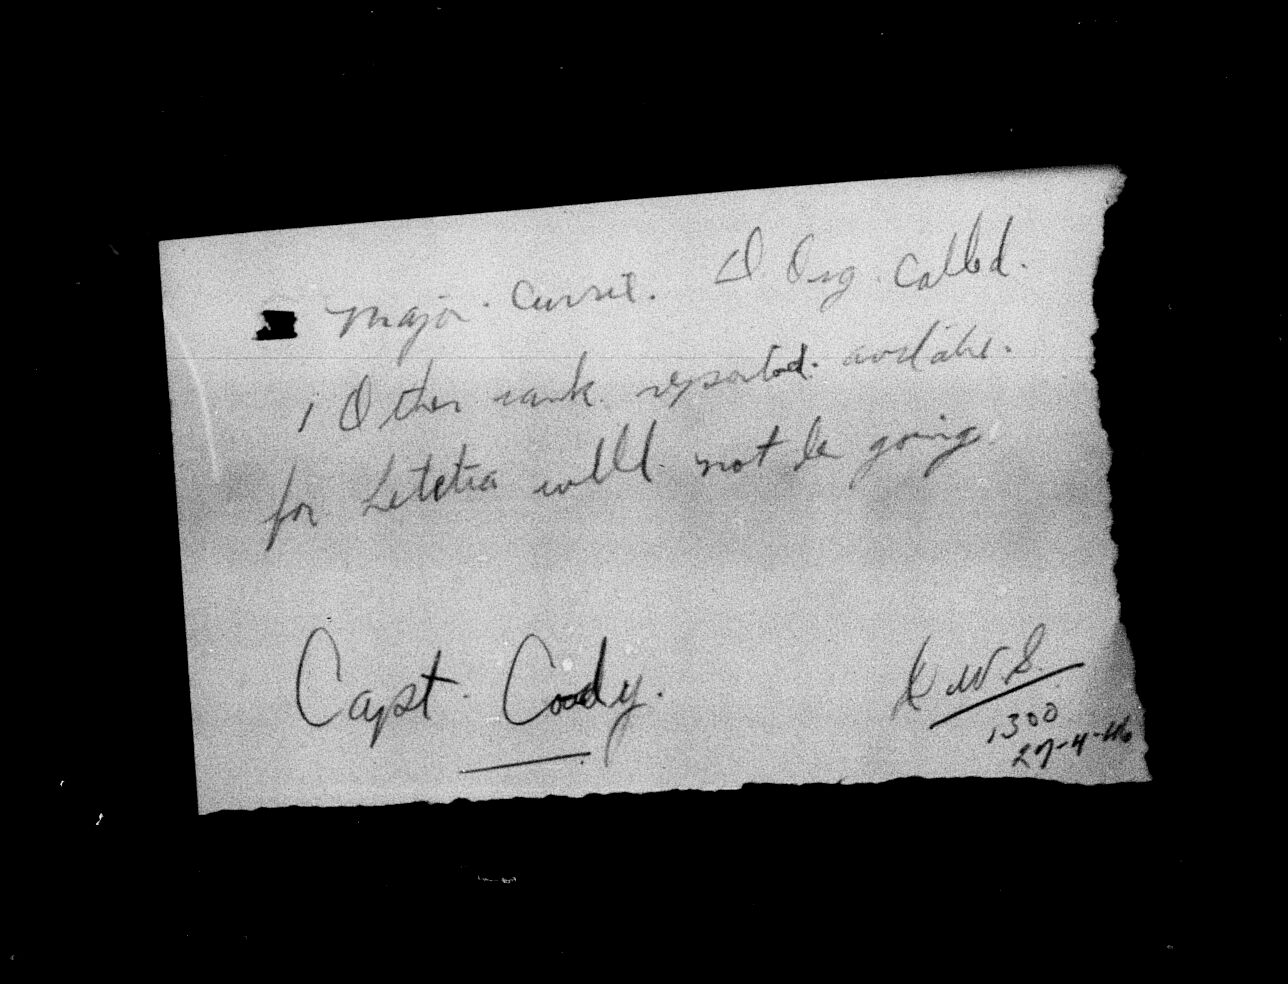 Major. Currie. D Org. Called.
1 Other rank reported. available.
for Letitia will not be going
Capt. Coady.
1300
27-4-46